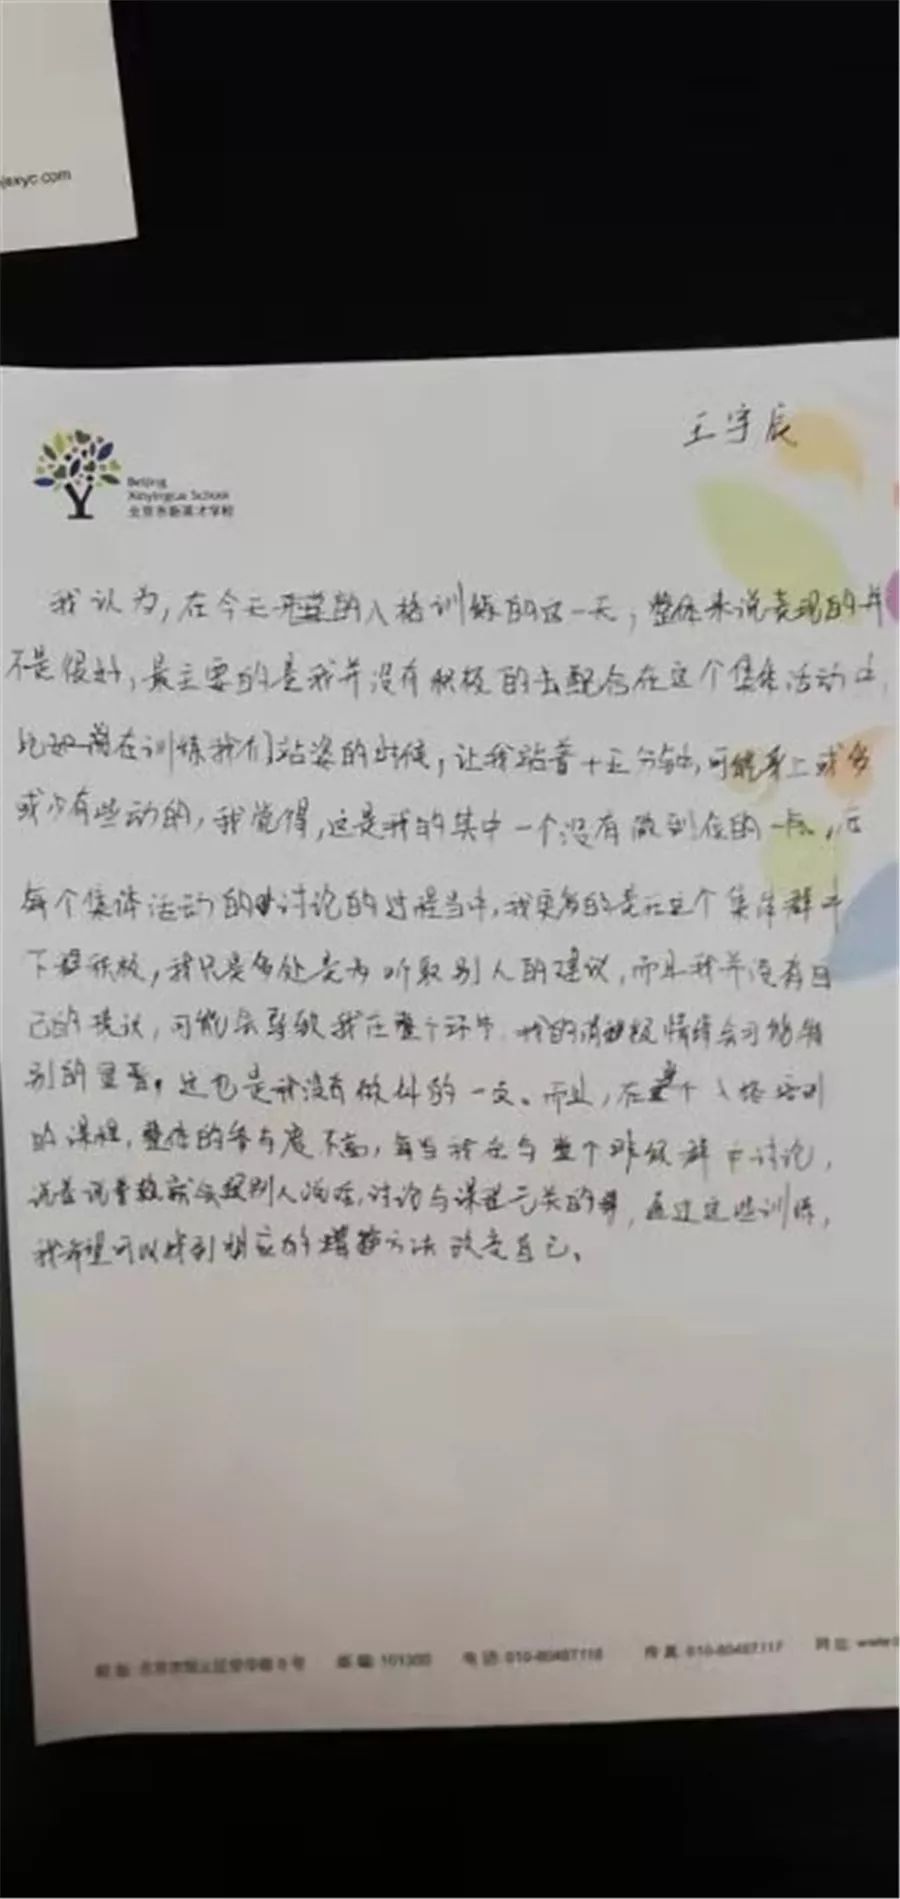 jsxyc.com
王宇辰
Beijing
Xinyingcai School
北京市新英才学校
我认为,在今天的人格训练的这一天,整体来说表现的并
不是很好,最主要的是我并没有积极的去配合在这个集体活动中,
比如在训练我们站姿的时候,让我站着十五分钟,可能身上或多
或少有些动的,我觉得,这是我的其中一个没有做到位的一点,在
每个集体活动的讨论的过程当中,我更多的是在这个集体群中
不积极,我只是多处是为听取别人的建议,而且我并没有自
己的提议,可能会导致我在整个环节,我的消极情绪会可能特
别的显著,这也是我没有做好的一点。而且,在整个人格培训
的课程,整体的参与度不高,每当我在与整个班级群中讨论,
说着说着就会跟别人说话,讨论与课程无关的事,通过这些训练,
我希望可以找到相应的方法改变自己。
邮编 101300
电话 010-80487118
传真 010-80487117
网址